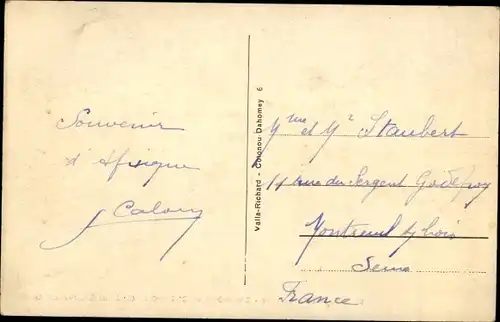 Souvenir
d'Afrique
Calary
Valla-Richard - Cotonou Dahomey 6
Mme et Mr Staubert
11 rue du Sergent Godefroy
Montreuil s/ bois
Seine
France